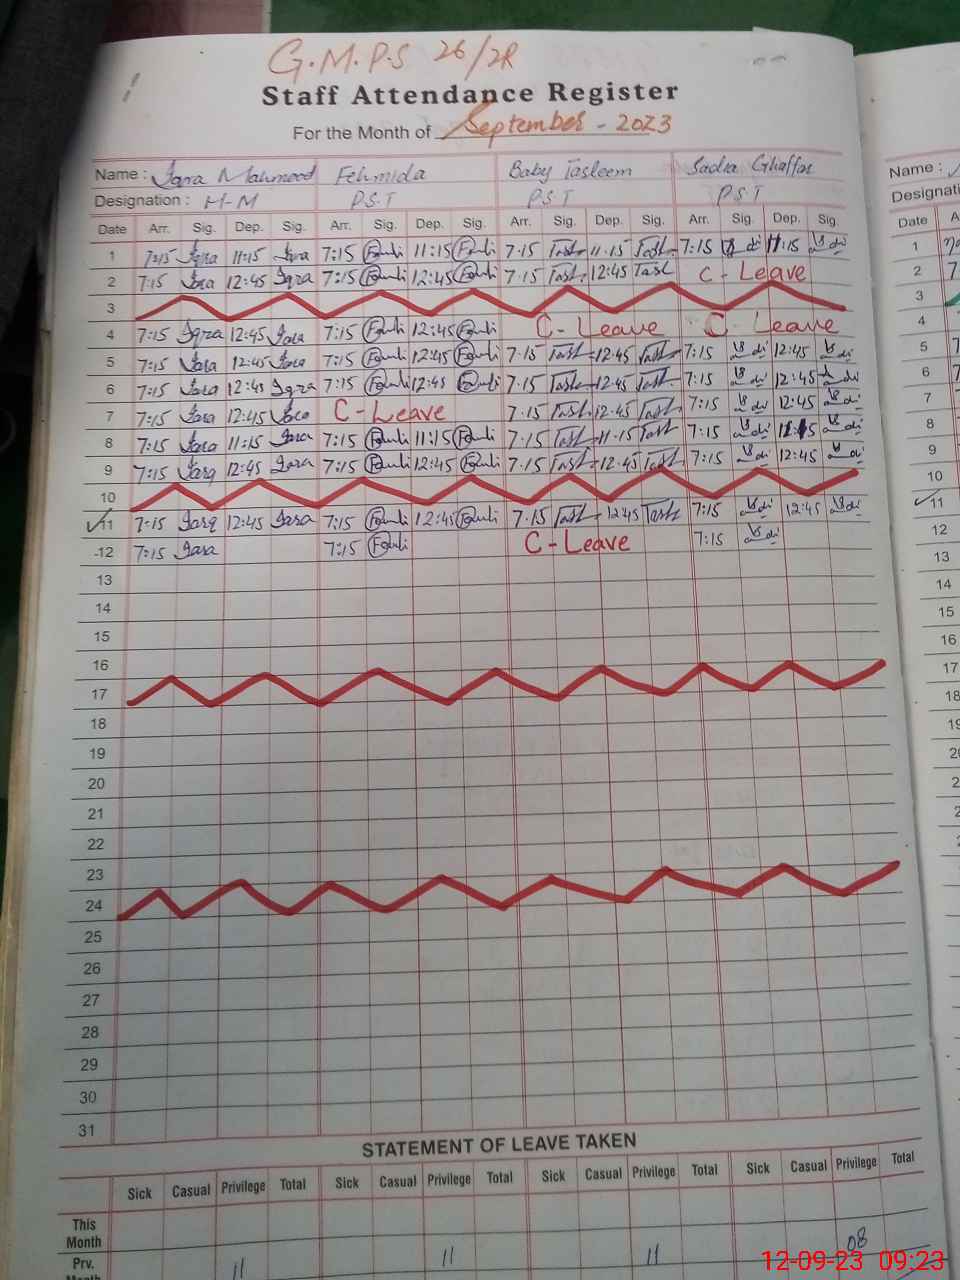 G.M.P.S 26/2R
Staff Attendance Register
For the Month of September - 2023
Name : Iqra Mahmood Fehmida Baby Tasleem Sadia Ghaffar
Designation : H-M P.S.T P.S.T P.S.T
Date Arr. Sig. Dep. Sig. Arr. Sig. Dep. Sig. Arr. Sig. Dep. Sig. Arr. Sig. Dep. Sig.
1 7:15 Iqra 11:15 Iqra 7:15 11:15 7:15 Tasl 11:15 Tasl 7:15 11:15
2 7:15 Iqra 12:45 Iqra 7:15 12:45 7:15 Tasl 12:45 Tasl C - Leave
3
4 7:15 Iqra 12:45 Iqra 7:15 12:45 C - Leave C - Leave
5 7:15 Iqra 12:45 Iqra 7:15 12:45 7:15 Tasl 12:45 Tasl 7:15 12:45
6 7:15 Iqra 12:45 Iqra 7:15 12:45 7:15 Tasl 12:45 Tasl 7:15 12:45
7 7:15 Iqra 12:45 Iqra C - Leave 7:15 Tasl 12:45 Tasl 7:15 12:45
8 7:15 Iqra 11:15 Iqra 7:15 11:15 7:15 Tasl 11:15 Tasl 7:15 11:15
9 7:15 Iqra 12:45 Iqra 7:15 12:45 7:15 Tasl 12:45 Tasl 7:15 12:45
10
11 7:15 Iqra 12:45 Iqra 7:15 12:45 7:15 Tasl 12:45 Tasl 7:15 12:45
12 7:15 Iqra 7:15 C - Leave 7:15
13
14
15
16
17
18
19
20
21
22
23
24
25
26
27
28
29
30
31
STATEMENT OF LEAVE TAKEN
Sick Casual Privilege Total Sick Casual Privilege Total Sick Casual Privilege Total Sick Casual Privilege Total
This Month
Prv. 11 11 11 08
Name :
Designation
Date
1
2
3
4
5
6
7
8
9
10
11
12
13
14
15
16
17
18
12-09-23 09:23